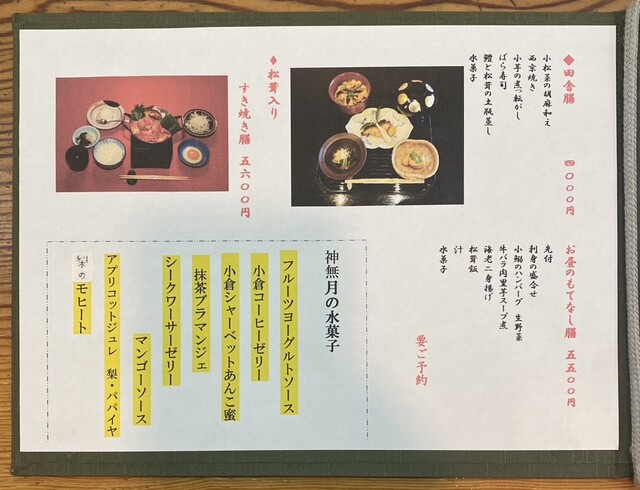 ◆田舎膳 四〇〇〇円
小松菜の胡麻和え
西京焼き
小芋の煮っ転がし
ばら寿司
鱧と松茸の土瓶蒸し
水菓子
◆松茸入り
すき焼き膳 五六〇〇円
お昼のもてなし膳 五五〇〇円
先付
刺身の盛合せ
小鍋のハンバーグ 生野菜
牛バラ肉里芋スープ煮
海老二身揚げ
松茸飯
汁
水菓子
要ご予約
神無月の水菓子
フルーツヨーグルトソース
小倉コーヒーゼリー
小倉シャーベットあんこ蜜
抹茶ブラマンジェ
シークワーサーゼリー
マンゴーソース
アプリコットジュレ 梨・パパイヤ
モヒート